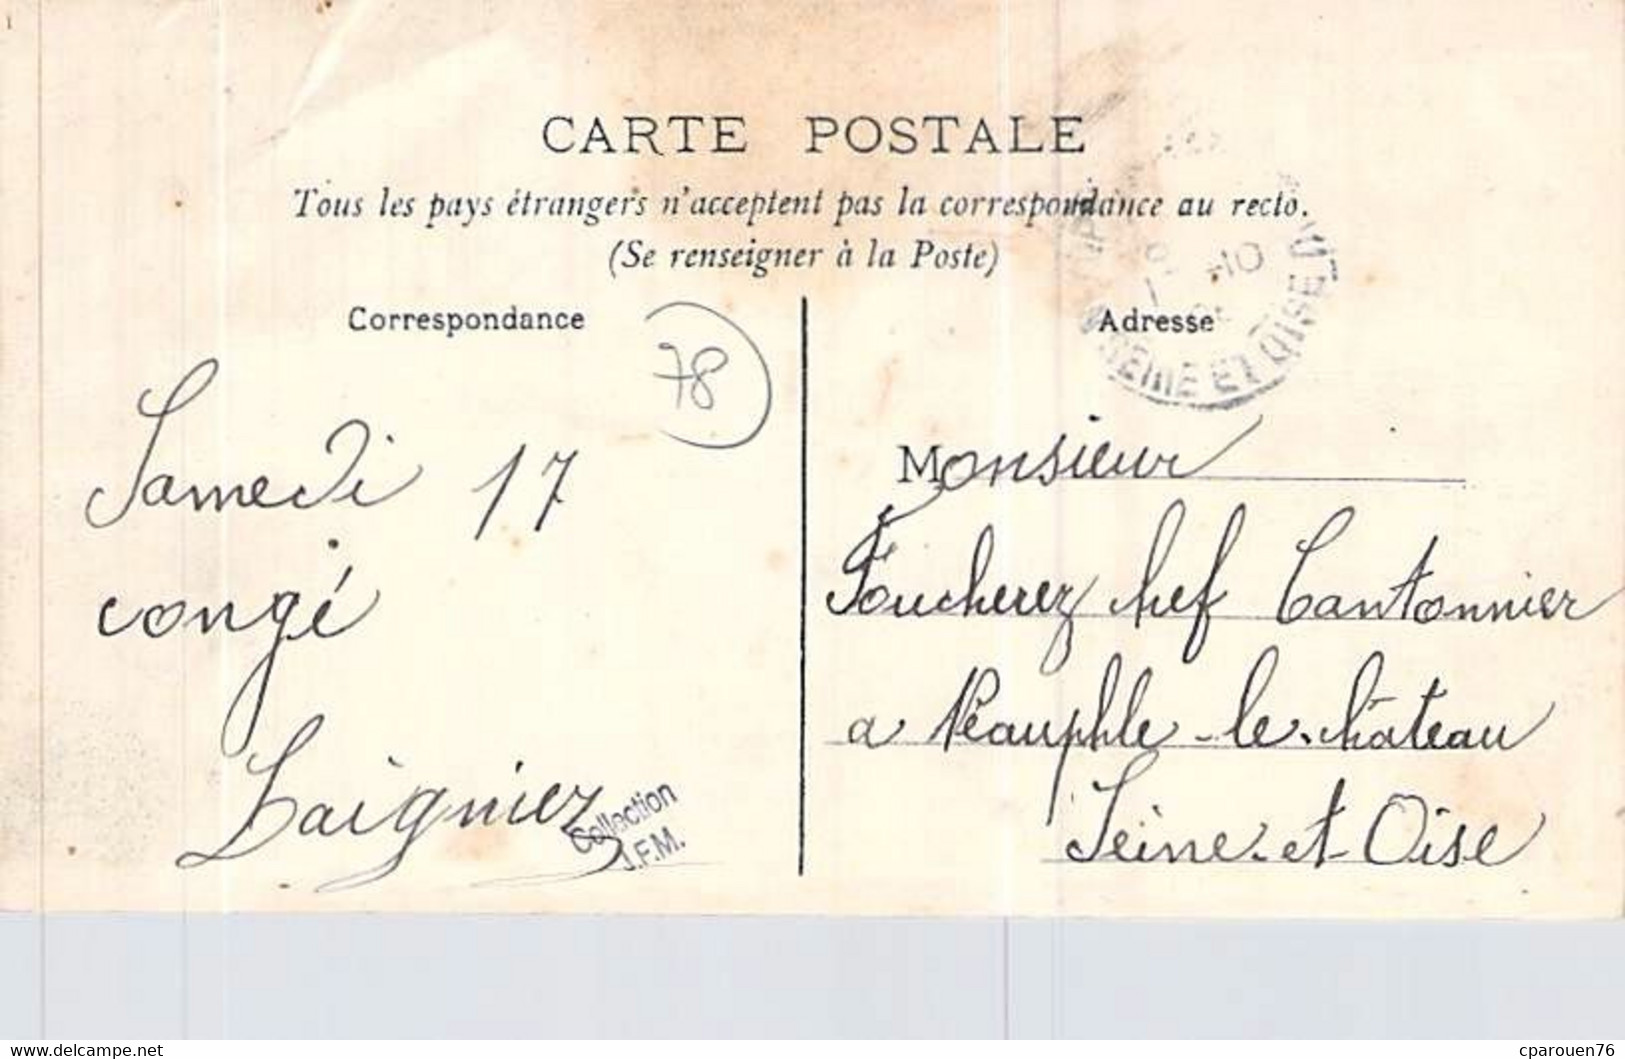 CARTE POSTALE
Tous les pays étrangers n'acceptent pas la correspondance au recto.
(Se renseigner à la Poste)
Correspondance
78
Samedi 17
congé
Laigniez
Collection
J.F.M.
Adresse
-10
SEINE ET OISE
Monsieur
Foucherez chef Cantonnier
a Néauphle-le-château
Seine-et-Oise
www.delcampe.net
cparouen76